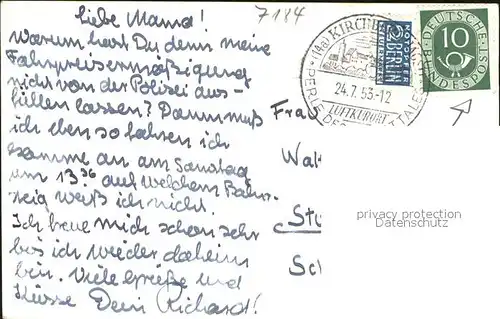 Liebe Mama!
7184
Warum hast Du denn meine
Fahrpreisermäßigung
nicht von der Polizei aus-
füllen lassen? Dann muß
ich eben so fahren ich
komme an am Samstag
um 13 36 auf welchem Bahn-
steig weiß ich nicht.
Ich freue mich schon sehr
bis ich wieder daheim
bin. Viele Grüße und
Küsse Dein Richard!
(14a) KIRCHB
24.7.53-12
LUFTKURORT
PERLE DES
NOTOPFER
2 BERLIN
DEUTSCHE
BUNDESPOST
10
Frau
Wal
St
Sc
privacy protection
Datenschutz